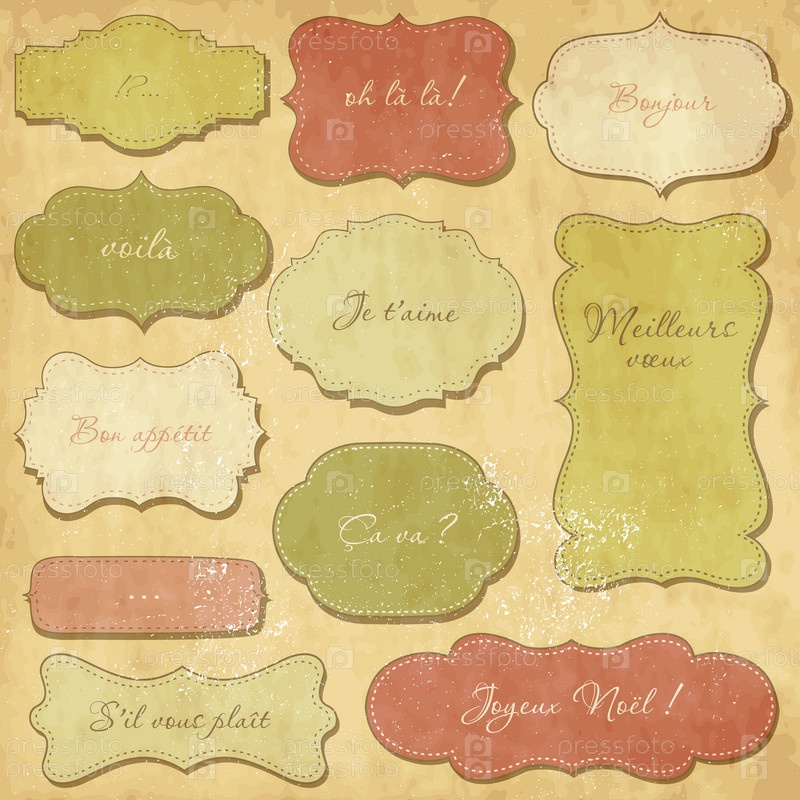 !?...
oh là là!
Bonjour
voilà
Je t'aime
Meilleurs
vœux
Bon appétit
Ça va ?
...
S'il vous plaît
Joyeux Noël !
pressfoto